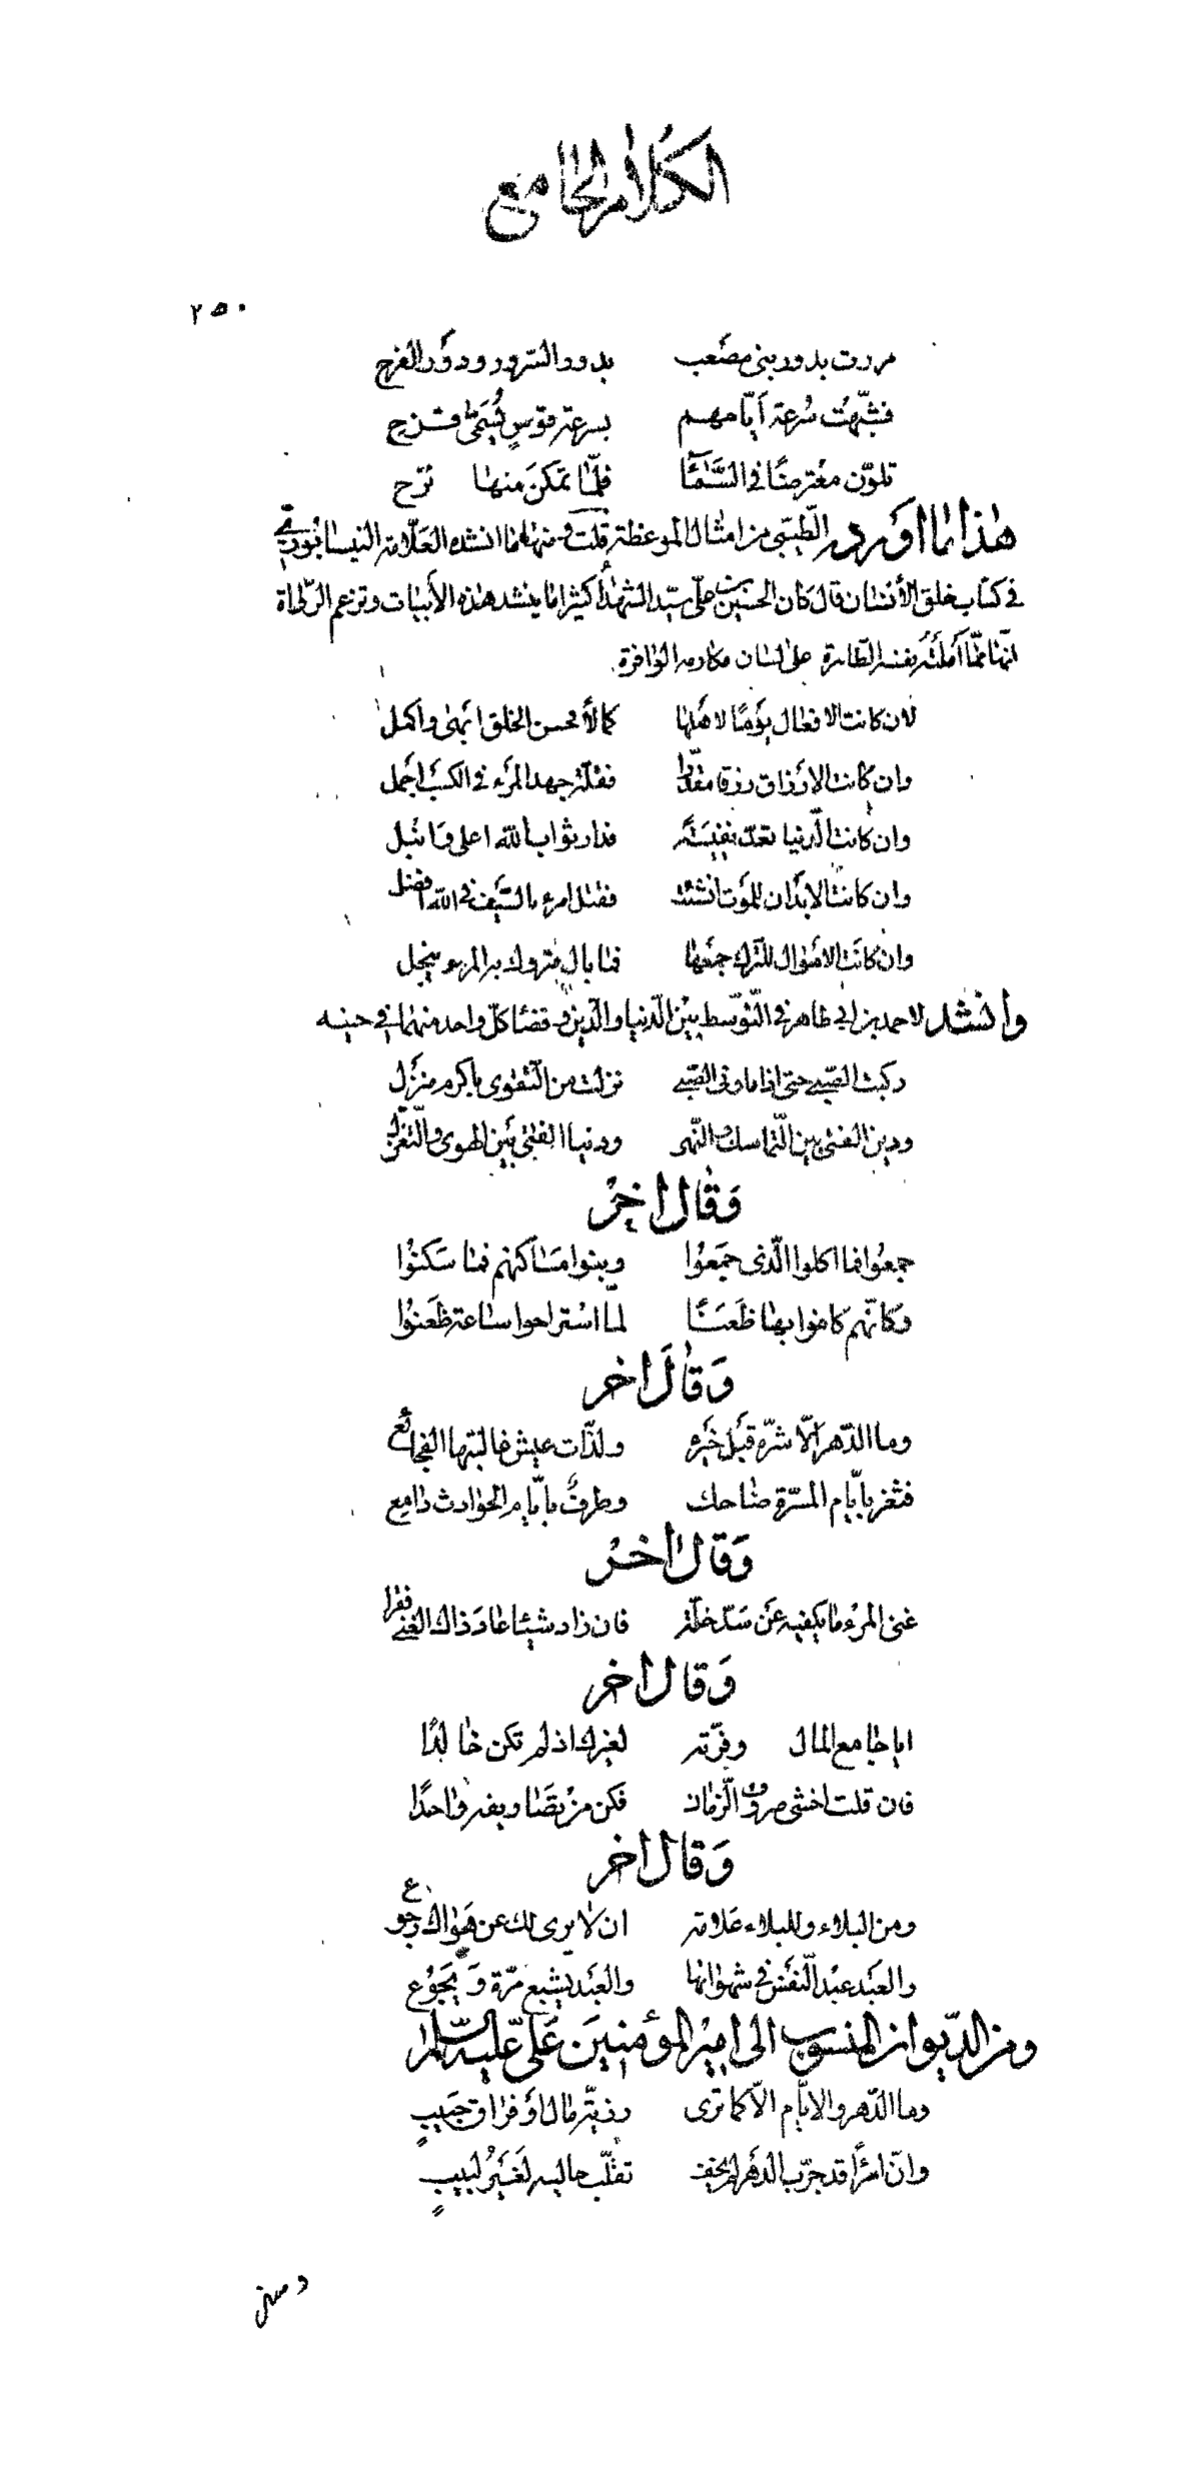 الكلام الجامع
٢٥٠
مررت بدور بني مصعب بدور السرور ودور الفرح
فشبّهت سُرعة أيّامهم بسرعة قوسٍ يُسَمّى قزح
تلوّن معترضًا في السَّمآء فلمّا تمكن منها نزح
هٰذا ما أورده الطيبي من امثال الموعظة قلت ومنها ما انشده العلّامة النيسابوري
في كتاب خلق الأنسان قال كان الحسين بن علي سيّد الشهداء كثيرا ما ينشد هٰذه الأبيات وتزعم الرواة
انّها ممّا أملته نفسه الطاهرة على لسان مكارمه الوافرة
لان كانت الافعال يومًا لاهلها كمالا فحسن الخلق ابهى واكمل
وان كانت الارزاق رزقا مقدّرا فقلّة جهد المرء في الكسب اجمل
وان كانت الدّنيا تعدّ نفيسَةً فدار ثواب اللّه اعلى وانبل
وان كانت الابدان للموت انشئت فقتل امرء بالسّيف في اللّه افضل
وان كانت الامٰوال للترك جمعها فما بال متروك به المرء يبخل
وانشد لاحمد بن ابي طاهر في التّوسّط بين الدّنيا والدّين وقضاء كلّ واحد منهما في حينه
ركبت الصّبى حتى اذا ما ونى الصّبى نزلت من التّقوى باكرم منزل
ودين الفتى بين التّماسك والنّهى ودنيا الفتى بين الهوى والتّغزّل
وَقٰال اخرُ
جمعُوا فما اكلوا الّذي جمَعُوا وبنوا مسٰاكنهم فما سَكنوُا
وكانّهم كانوا بها ظَعَنًا لمّا اسْتراحوا ساعة ظعَنوُا
وَقٰالَ اخر
وما الدّهر الّا شرّه قبل خيره ولذّات عيش غالبتها الفجائع
فثغر بايّام المسرّة ضٰاحك وطرفٌ بايّام الحوادث دامع
وَقال اخرُ
غنى المرء ما يكفيه عن سَدّ خلّة فان زاد شيئا عادَ ذاك الغنى فقرا
وَقال اخر
ايا جامع المال وفّرته لغيرك اذ لم تكن خٰالدًا
فان قلت اخشى صروف الزّمان فكن من تصَاريفه واحدًا
وَقال اخر
ومن البلاء وللبلاء عَلامة ان لا يرى لك عن هَواك رجوع
والعَبد عبد النّفس في شهواتها والعَبد يشبع مرّة وَيجوُع
ومن الدّيوان المنسوب الى اميْر المؤمنينَ عَليّ عليه السّلام
وما الدّهر والايّام الّا كما ترى رزيّة مال او فراق حبيبٍ
وانّ امرأ قد جرّب الدهر لم يخف تقلّب حاليه لغَيرُ لبيبٍ